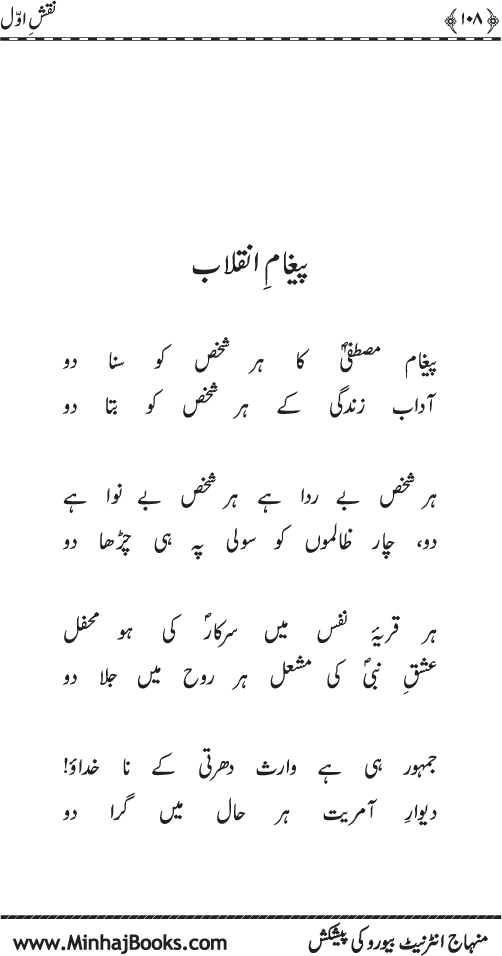 نقشِ اوّل ﴿۱۰۸﴾
پیغامِ انقلاب
پیغام مصطفیٰؐ کا ہر شخص کو سنا دو
آداب زندگی کے ہر شخص کو بتا دو
ہر شخص بے ردا ہے ہر شخص بے نوا ہے
دو، چار ظالموں کو سولی پہ ہی چڑھا دو
ہر قریۂ نفس میں سرکارؐ کی ہو محفل
عشقِ نبیؐ کی مشعل ہر روح میں جلا دو
جمہور ہی ہے وارث دھرتی کے نا خداؤ!
دیوارِ آمریت ہر حال میں گرا دو
منہاج انٹرنیٹ بیورو کی پیشکش www.MinhajBooks.com